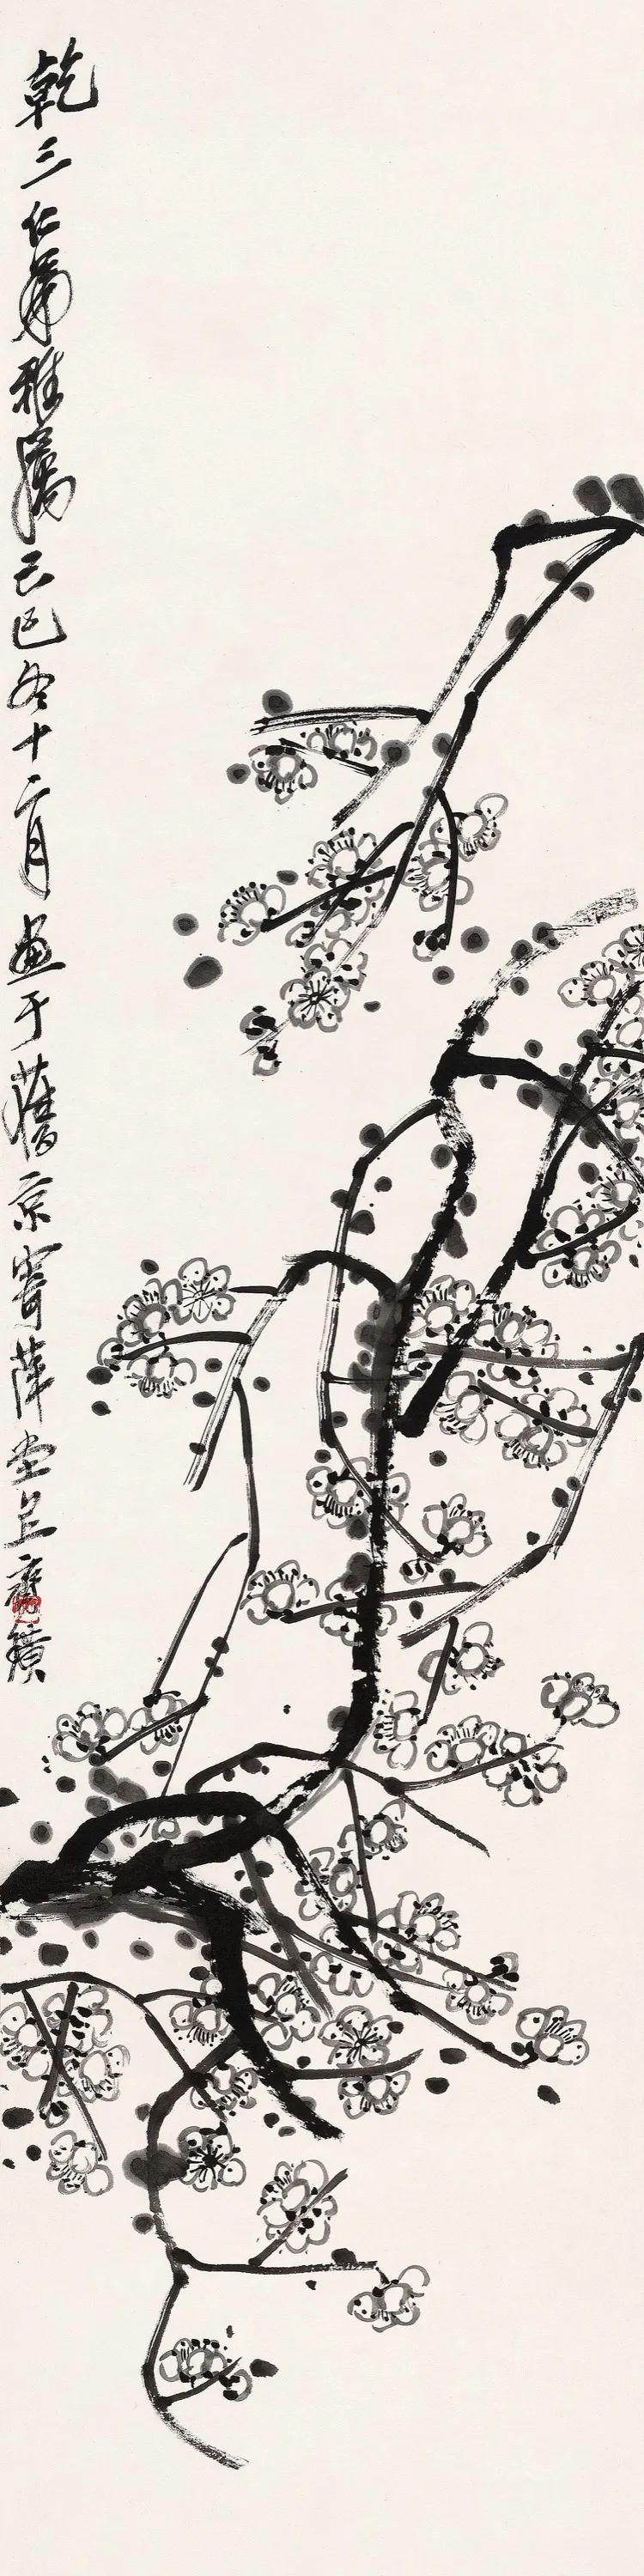 乾三仁弟雅屬己巳冬十二月畫于舊京寄萍堂上齊璜